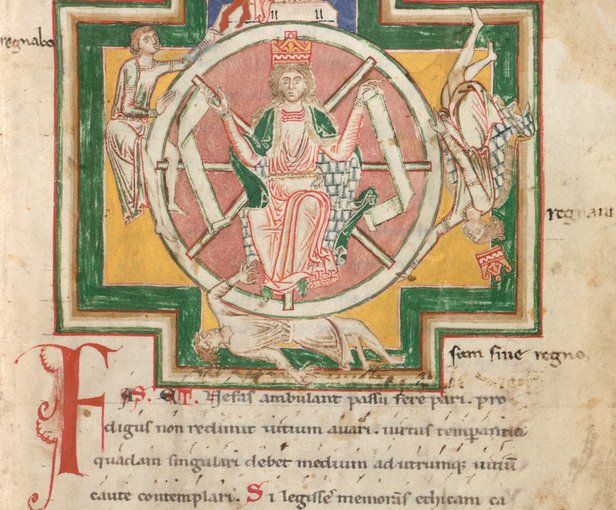 regnabo
regnaui
sum sine regno
FAS ET Nefas ambulant passu fere pari. pro
digus non redimit uitium auari. uirtus temperantia
quadam singulari debet medium ad utrumq; uitiū
caute contemplari. Si legisse memorās ethicam ca